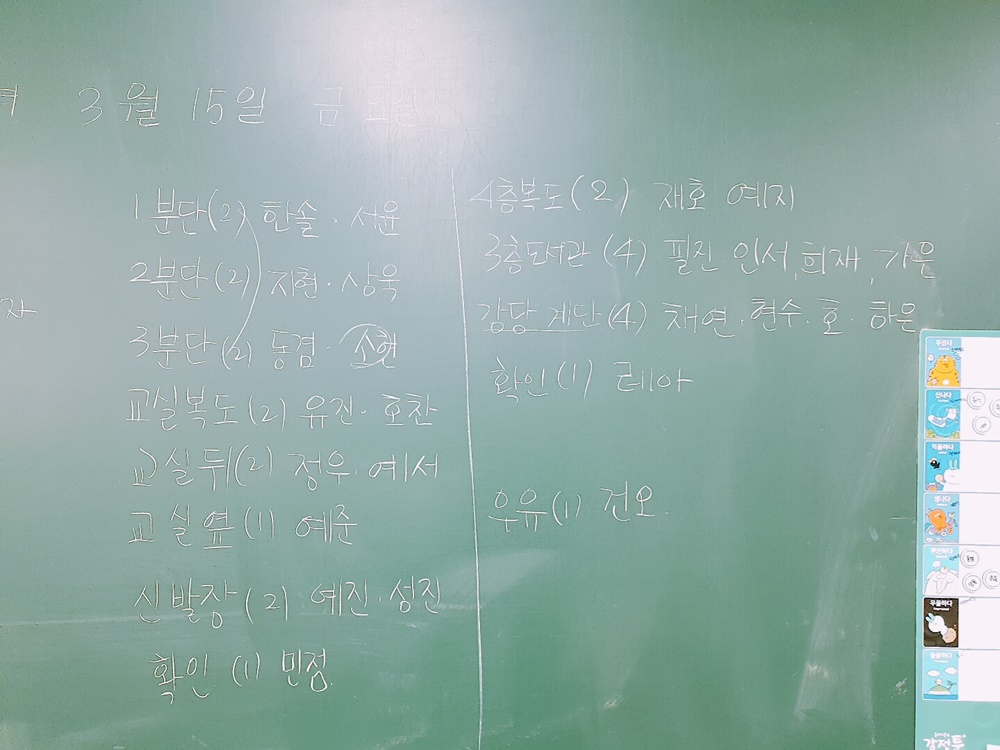 3월 15일 금요일
1분단(2) 한솔·서윤
2분단(2) 지현·상욱
3분단(2) 동겸·소현
교실복도(2) 유진·호찬
교실뒤(2) 정우·예서
교실옆(1) 예준
신발장(2) 예진·성진
확인(1) 민점.
4층복도(2) 재호 예지
3층도서관(4) 필진·인서, 희재, 가은
강당 계단(4) 채연·현수·호·하은
확인(1) 레아
우유(1) 건오.
무섭다
신나다
억울하다
우울하다